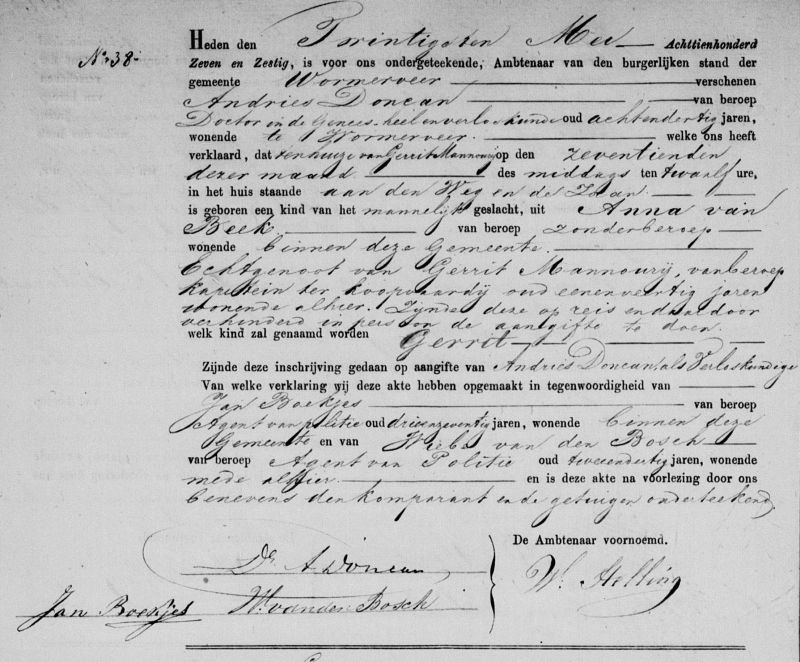 No. 38.
Heden den Twintigsten Mei Achttienhonderd
Zeven en Zestig, is voor ons ondergeteekende, Ambtenaar van den burgerlijken stand der
gemeente Wormerveer verschenen
Andries Doncan van beroep
Doctor in de Genees- heel en verloskunde oud achtendertig jaren,
wonende te Wormerveer. welke ons heeft
verklaard, dat ten huize van Gerrit Mannourij op den zeventienden
dezer maand des middags ten twaalf ure,
in het huis staande aan den Weg en de Zaan.
is geboren een kind van het mannelijk geslacht, uit Anna van
Beek. van beroep zonder beroep
wonende binnen deze Gemeente.
Echtgenoot van Gerrit Mannourij, van beroep
kapitein ter koopvaardij oud eenenveertig jaren
wonende alhier. Zijnde deze op reis en daardoor
verhinderd in persoon de aangifte te doen.
welk kind zal genaamd worden Gerrit
Zijnde deze inschrijving gedaan op aangifte van Andries Doncan, als Verloskundige
Van welke verklaring wij deze akte hebben opgemaakt in tegenwoordigheid van
Jan Boekjes van beroep
Agent van politie oud drieenzeventig jaren, wonende binnen deze
Gemeente en van van den Bosch
van beroep Agent van Politie oud tweeendertig jaren, wonende
mede alhier. en is deze akte na voorlezing door ons
benevens den komparant en de getuigen onderteekend.
De Ambtenaar voornoemd.
Dr. A Doncan
W. Helling
Jan Boekjes W. van den Bosch